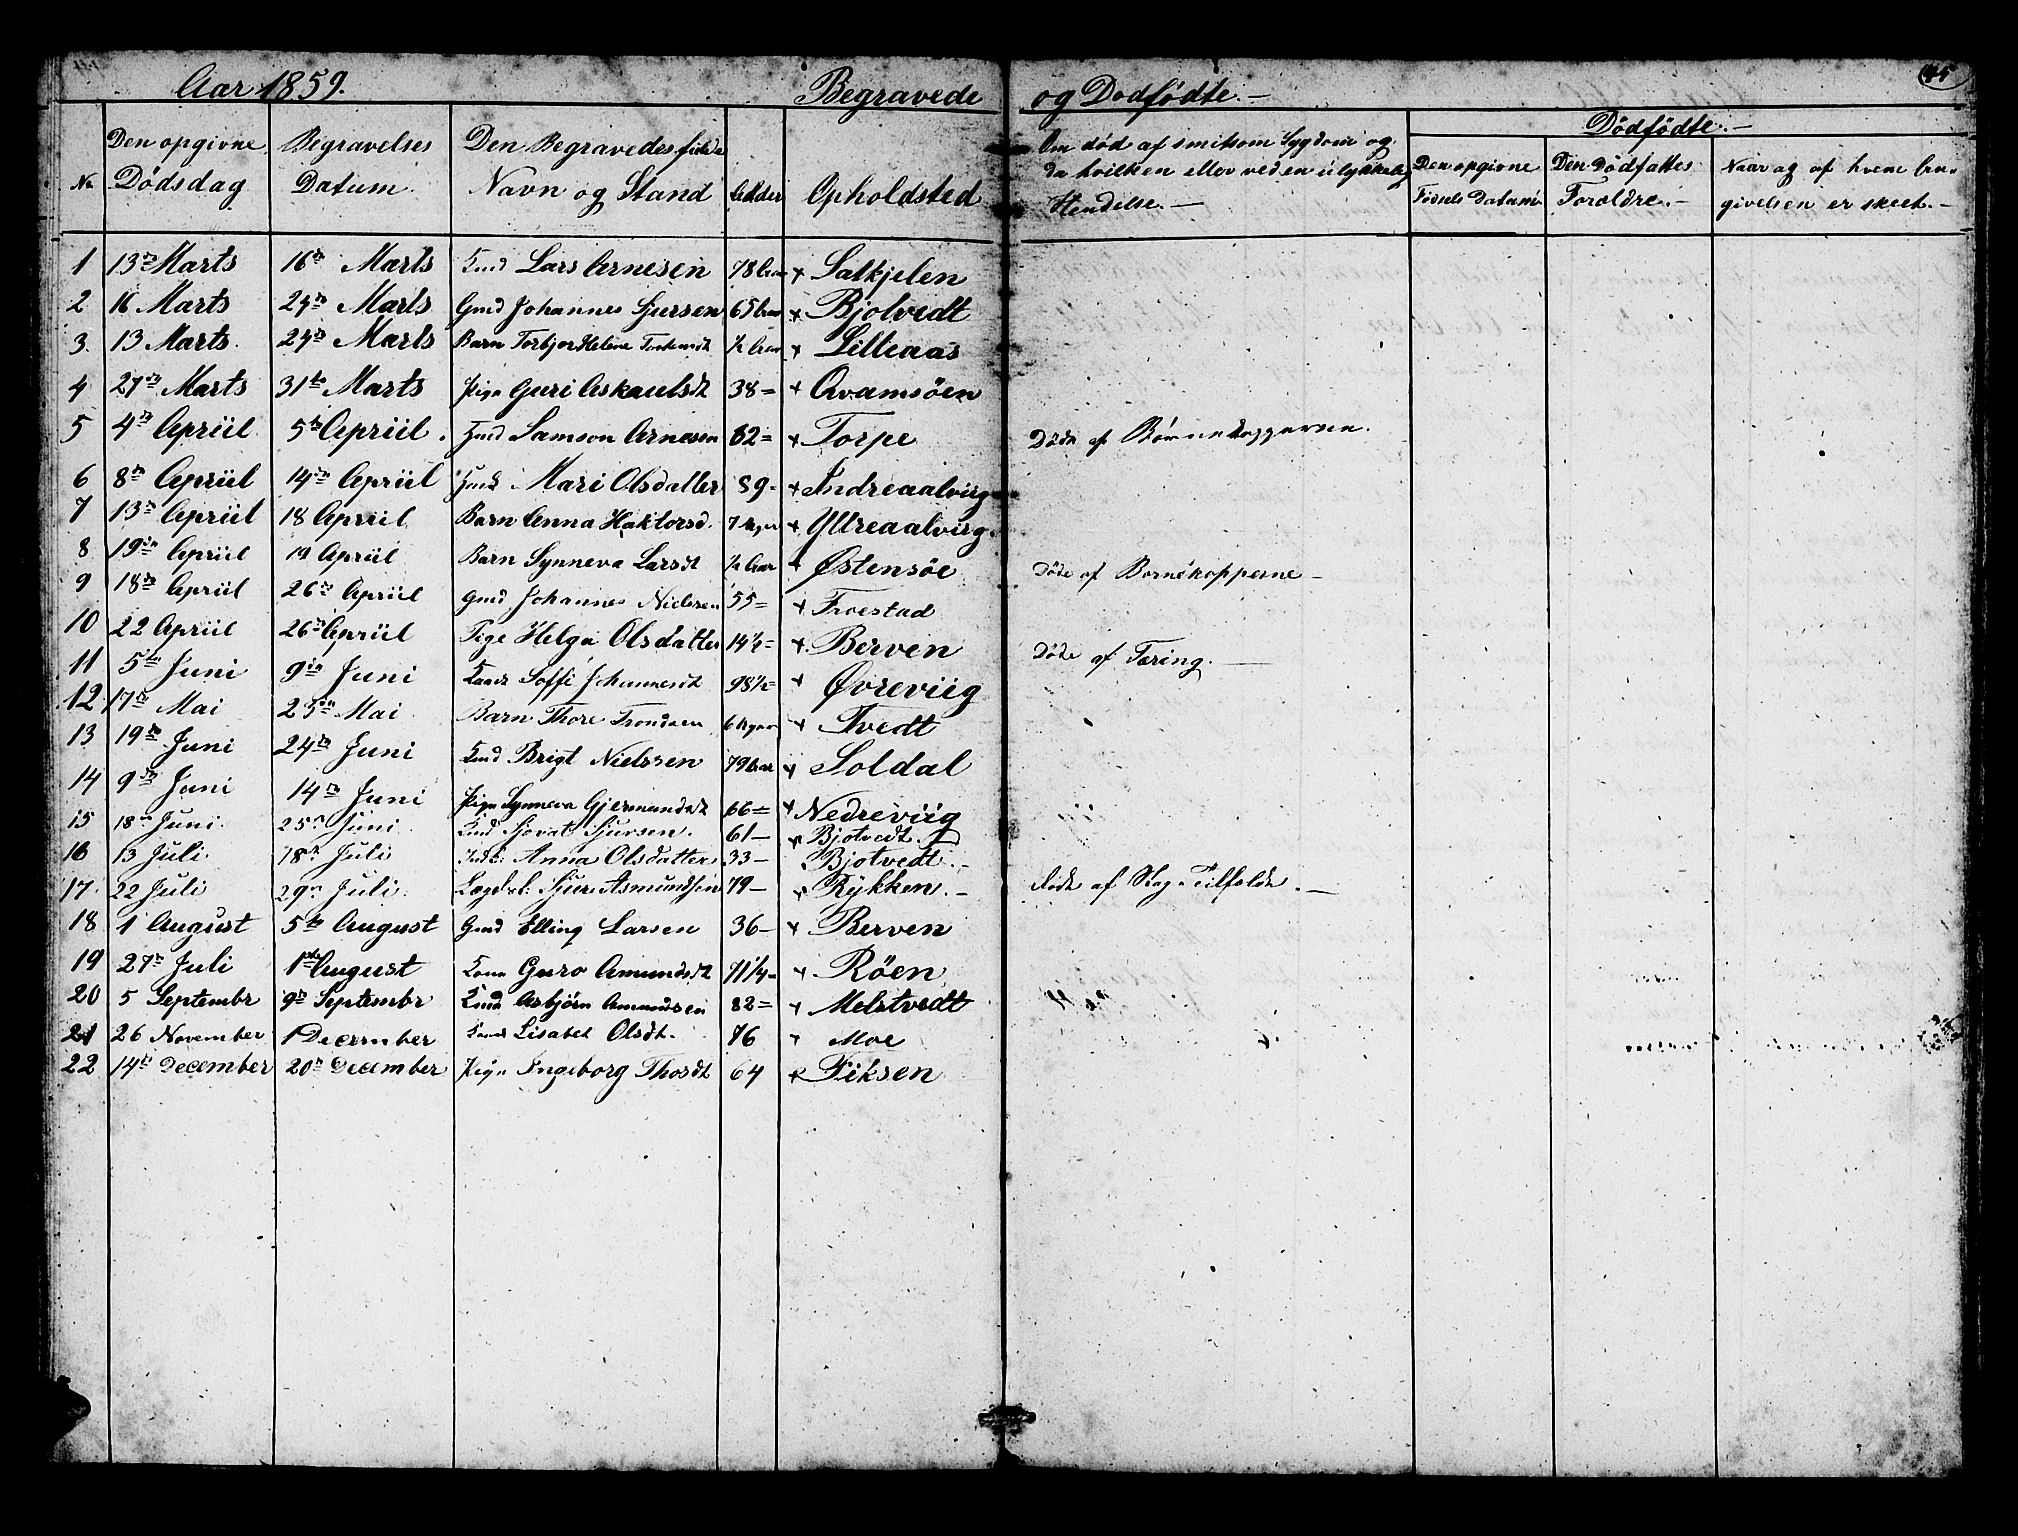 Aar 1859. Begravede og Dodfödte. 45
Dödfödte.
No Den opgivne Dödsdag Begravelses Datum Den Begravedes fulde Navn og Stand Alder Opholdsted Om död af smitsom Sygdom og da hvilken eller ved en ulykkelig Hendelse. Den opgivne Födsels Datum Den Dödfödtes Foroldre. Naar og af hvem
givelsen er skeet.
1 13de Marts 16de Marts Lars Arnesen 78 Aar + Latkjelen
2 16 Marts 24de Marts Gmd Johannes Sjursen 65 Aar + Bjotvedt
3. 13 Marts. 24de Marts Barn Torbjor Helene ½ Aar + Lilleaas
4 27de Marts 31te Marts Pige Guri Askaulsdt 38= + Qvamsöen
5 4de Apriil 5te Apriil. Samson Arnesen 82= + Torpe Döde af Börnekopperne.
6 8de Apriil 14de Apriil Mari Olsdatter 59- + Indreaalviig
7 13de Apriil 18 Apriil Barn Anna Haktorsd. 7 Uger + Yttreaalviig.
8 19de Apriil 19 Apriil Barn Synneva Larsdt ½ Aar + Østensöe Döde af Bornekopperne –
9 18de Apriil 26de Apriil Gmd Johannes Nielsen 55= + Froestad
10 22 Apriil 26de Apriil Pige Helga Olsdatter 14½= +. Berven Döde af Tæring. —
11 5te Juni 9de Juni Soffi Johannesdt 98½= + Øvreviig
12 17de Mai 23de Mai Barn Thore Trondsen 6 Uger + Tvedt
13 19de Juni 24de Juni Brigt Nielssen 79 Aar + Soldal
14 9de Juni 14de Juni Pige Synneva Gjermundsdt 66= + Nedreviig
15 18de Juni. 25de Juni. Sjovat Sjursen. 61– + Bjotvedt.
16 13 Juli. 18de Juli Anna Olsdatter 33– Bjotvedt.–
17. 22 Juli 29de Juli. Sjur Asmundsen 79– + Rykken.– Döde af Slag-Tilfælde. —
18 1 August 5te August Gmd Elling Larsen 36– + Berven
19 27de Juli 1ste August Kone Guro Amundsdt 71¼= + Röen
20 5 Septembr 9de Septembr Asbjörn Amundsen 82= + Melstvedt
21 26 November 1 December Lisabet Olsdt. 76 + Moe
22 14de December 20de December Pige Ingeborg Thosdt 64 + Fiksen